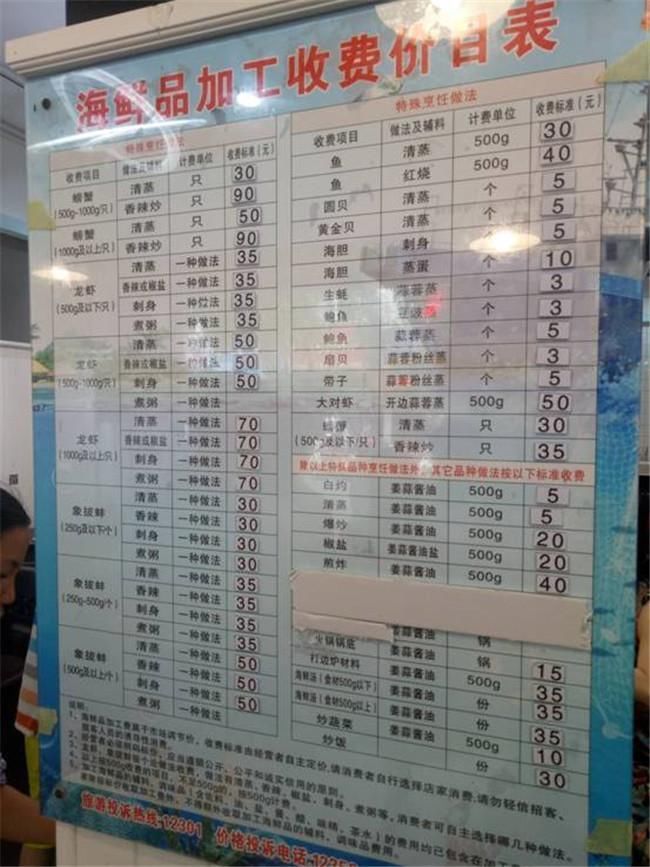 海鲜品加工收费价目表
特殊烹饪做法
收费项目 做法及辅料 计费单位 收费标准(元)
螃蟹 (500g-1000g/只) 清蒸 只 30
香辣炒 只 90
螃蟹 (1000g及以上/只) 清蒸 只 50
香辣炒 只 90
龙虾 (500g及以下/只) 清蒸 一种做法 35
香辣或椒盐 一种做法 35
刺身 一种做法 35
煮粥 一种做法 35
龙虾 (500g-1000g/只) 清蒸 一种做法 50
香辣或椒盐 一种做法 50
刺身 一种做法 50
煮粥 一种做法
龙虾 (1000g及以上/只) 清蒸 一种做法 70
香辣或椒盐 一种做法 70
刺身 一种做法 70
煮粥 一种做法 70
象拔蚌 (250g及以下/个) 清蒸 一种做法 30
香辣 一种做法 30
刺身 一种做法 30
煮粥 一种做法 30
象拔蚌 (250g-500g/个) 清蒸 一种做法 35
香辣 一种做法 35
刺身 一种做法 35
煮粥 一种做法 35
象拔蚌 (500g及以上/个) 清蒸 一种做法 35
香辣 一种做法 50
刺身 一种做法 50
煮粥 一种做法 50
特殊烹饪做法
收费项目 做法及辅料 计费单位 收费标准(元)
鱼 清蒸 500g 30
鱼 红烧 500g 40
圆贝 清蒸 个 5
黄金贝 清蒸 个 5
海胆 刺身 个
海胆 蒸蛋 个 10
生蚝 蒜蓉蒸 个 3
鲍鱼 豆豉蒸 个 3
鲍鱼 蒜蓉蒸 个 5
扇贝 蒜蓉粉丝蒸 个 3
带子 蒜蓉粉丝蒸 个 5
大对虾 开边蒜蓉蒸 500g 50
螃蟹 (500g及以下/只) 清蒸 只 30
香辣炒 只 35
除以上特殊品种烹饪做法外,其它品种做法按以下标准收费
白灼 姜蒜酱油 500g 5
清蒸 姜蒜酱油 500g 5
爆炒 姜蒜酱油 500g 20
椒盐 姜蒜酱油盐 500g 20
煎炸 姜蒜酱油 500g 40
火锅锅底 姜蒜酱油 锅
打边炉材料 姜蒜酱油 锅 15
海鲜汤(食材500g以下) 姜蒜酱油 500g 35
海鲜汤(食材500g以上) 姜蒜酱油 份 35
炒蔬菜 500g 10
炒饭 份 30
说明:
1、海鲜品加工费属于市场调节价,收费标准由经营者自主定价,请消费者自行选择店家消费,请勿轻信招客、
拉客人员的诱导性消费。
2、经营者必须明码标价,应当遵循公开、公平和诚实信用的原则。
旅游投诉热线:12301 价格投诉电话:12358